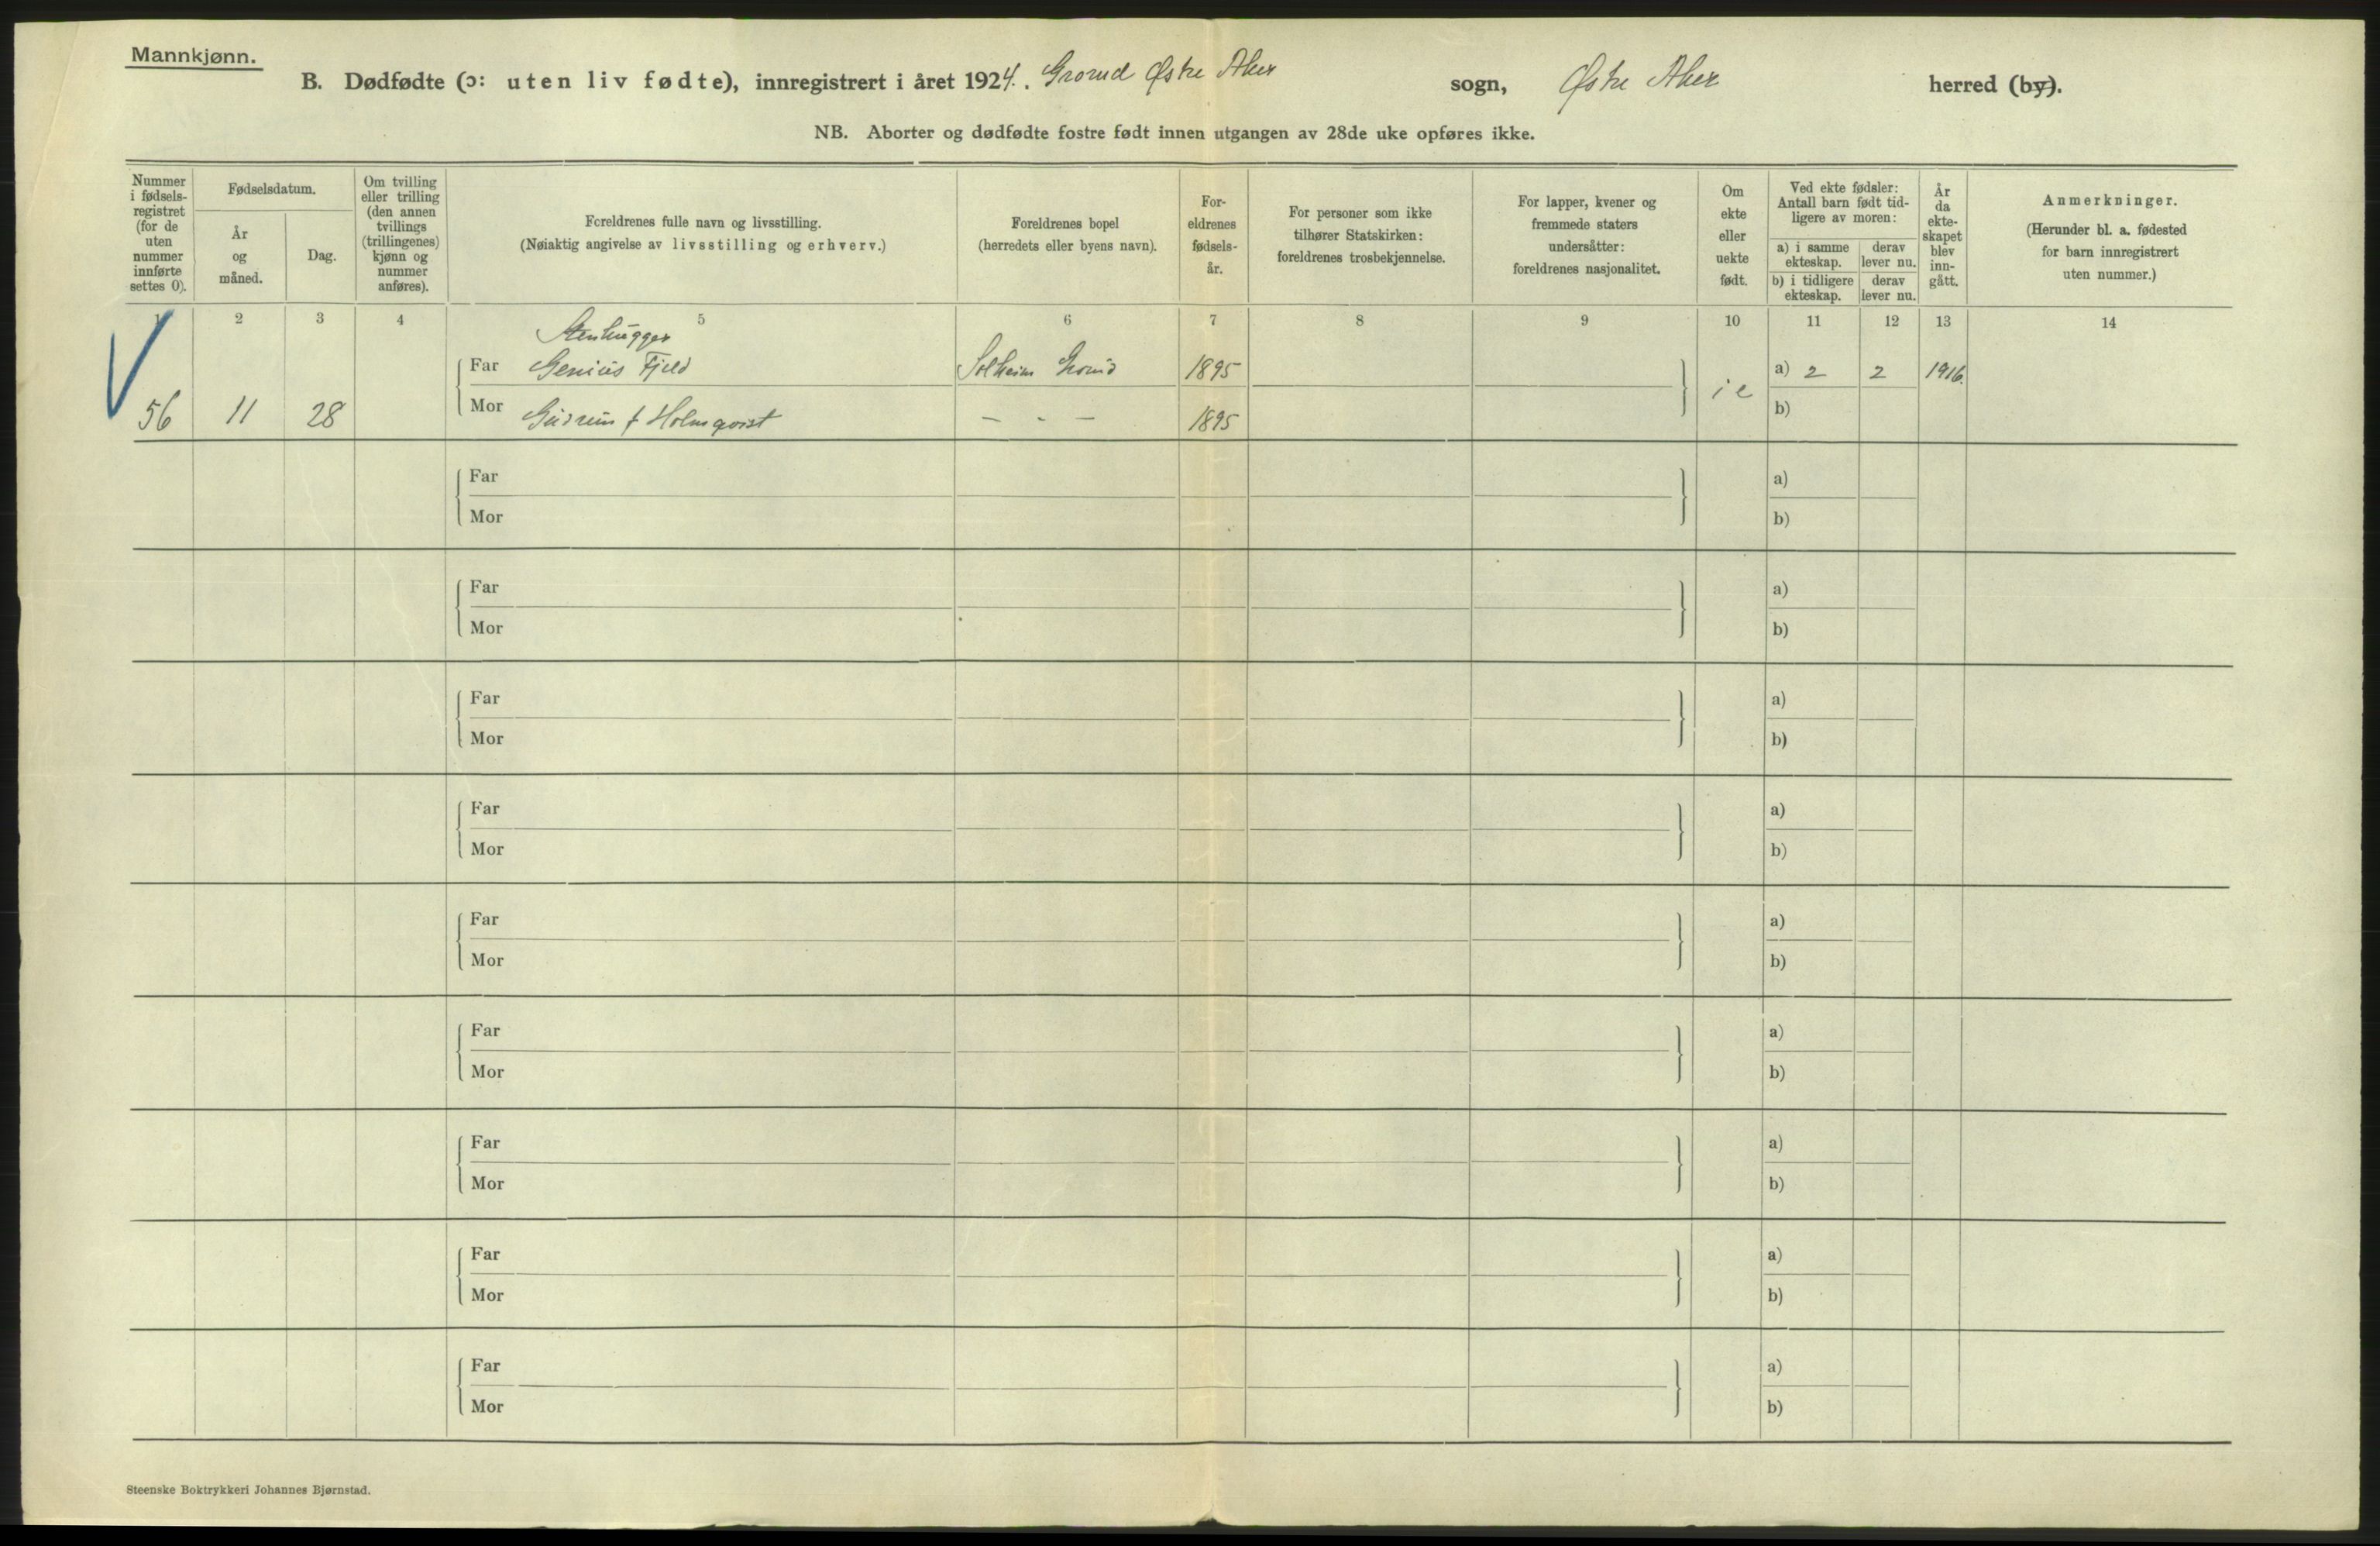 Mannkjønn.
B. Dødfødte (ɔ: uten liv fødte), innregistrert i året 1924. Grorud Østre Aker sogn, Østre Aker herred (by).
NB. Aborter og dødfødte fostre født innen utgangen av 28de uke opføres ikke.
Nummer
i fødsels-
registret
(for de
uten
nummer
innførte
settes 0).
Fødselsdatum.
År
og
måned.
Dag.
Om tvilling
eller trilling
(den annen
tvillings
(trillingenes)
kjønn og
nummer
anføres).
Foreldrenes fulle navn og livsstilling.
(Nøiaktig angivelse av livsstilling og erhverv.)
Foreldrenes bopel
(herredets eller byens navn).
For-
eldrenes
fødsels-
år.
For personer som ikke
tilhører Statskirken:
foreldrenes trosbekjennelse.
For lapper, kvener og
fremmede staters
undersåtter:
foreldrenes nasjonalitet.
Om
ekte
eller
uekte
født.
Ved ekte fødsler:
Antall barn født tid-
ligere av moren:
a) i samme
ekteskap.
derav
lever nu.
b) i tidligere
ekteskap.
derav
lever nu.
År
da
ekte-
skapet
blev
inn-
gått.
Anmerkninger.
(Herunder bl. a. fødested
for barn innregistrert
uten nummer.)
1 2 3 4 5 6 7 8 9 10 11 12 13 14
Stenhugger
Far Genius Fjeld Solheim Grorud 1895 a) 2 2 1916.
56 11 28 Mor Gudrun f Holmqvist — - — 1895 i e b)
Far a)
Mor b)
Far a)
Mor b)
Far a)
Mor b)
Far a)
Mor b)
Far a)
Mor b)
Far a)
Mor b)
Far a)
Mor b)
Far a)
Mor b)
Far a)
Mor b)
Steenske Boktrykkeri Johannes Bjørnstad.